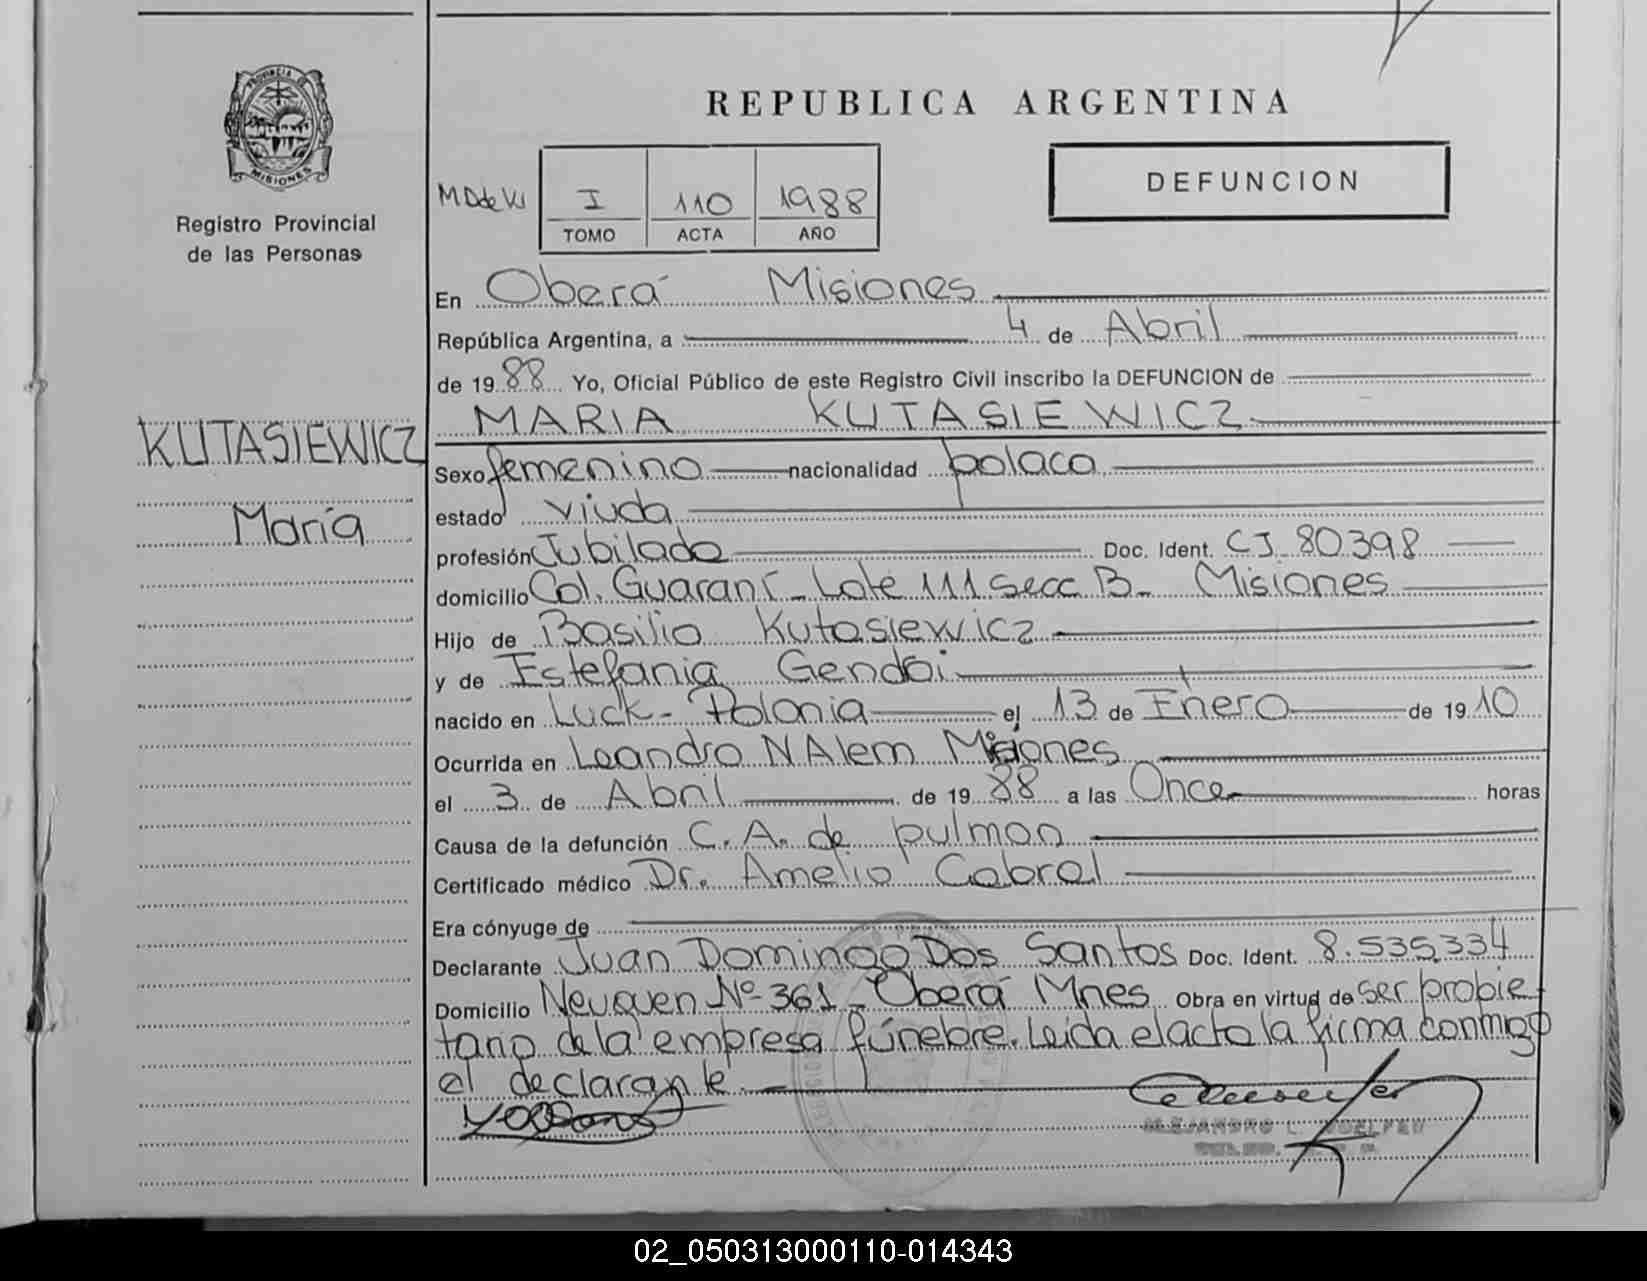 PROVINCIA DE
MISIONES
Registro Provincial
de las Personas
KUTASIEWICZ
María
REPUBLICA ARGENTINA
I 110 1988
TOMO ACTA AÑO
DEFUNCION
En Oberá Misiones
República Argentina, a 4 de Abril
de 1988 Yo, Oficial Público de este Registro Civil inscribo la DEFUNCION de
MARIA KUTASIEWICZ
Sexo femenino nacionalidad polaca
estado viuda
profesión Jubilada Doc. Ident. CI 80398
domicilio Col. Guaraní - Lote 111 Secc B - Misiones
Hijo de Basilio Kutasiewicz
y de Estefania
nacido en Luck - Polonia el 13 de Enero de 1910
Ocurrida en Leandro N Alem Misiones
el 3 de Abril de 1988 a las Once horas
Causa de la defunción C. A. de pulmon
Certificado médico Dr. Amelio Cabral
Era cónyuge de
Declarante Juan Domingo Dos Santos Doc. Ident. 8.535.334
Domicilio Neuquen Nº 361 - Oberá Mnes Obra en virtud de ser propie
tario de la empresa fúnebre. Leida el acta la firma conmigo
el declarante
02_050313000110-014343